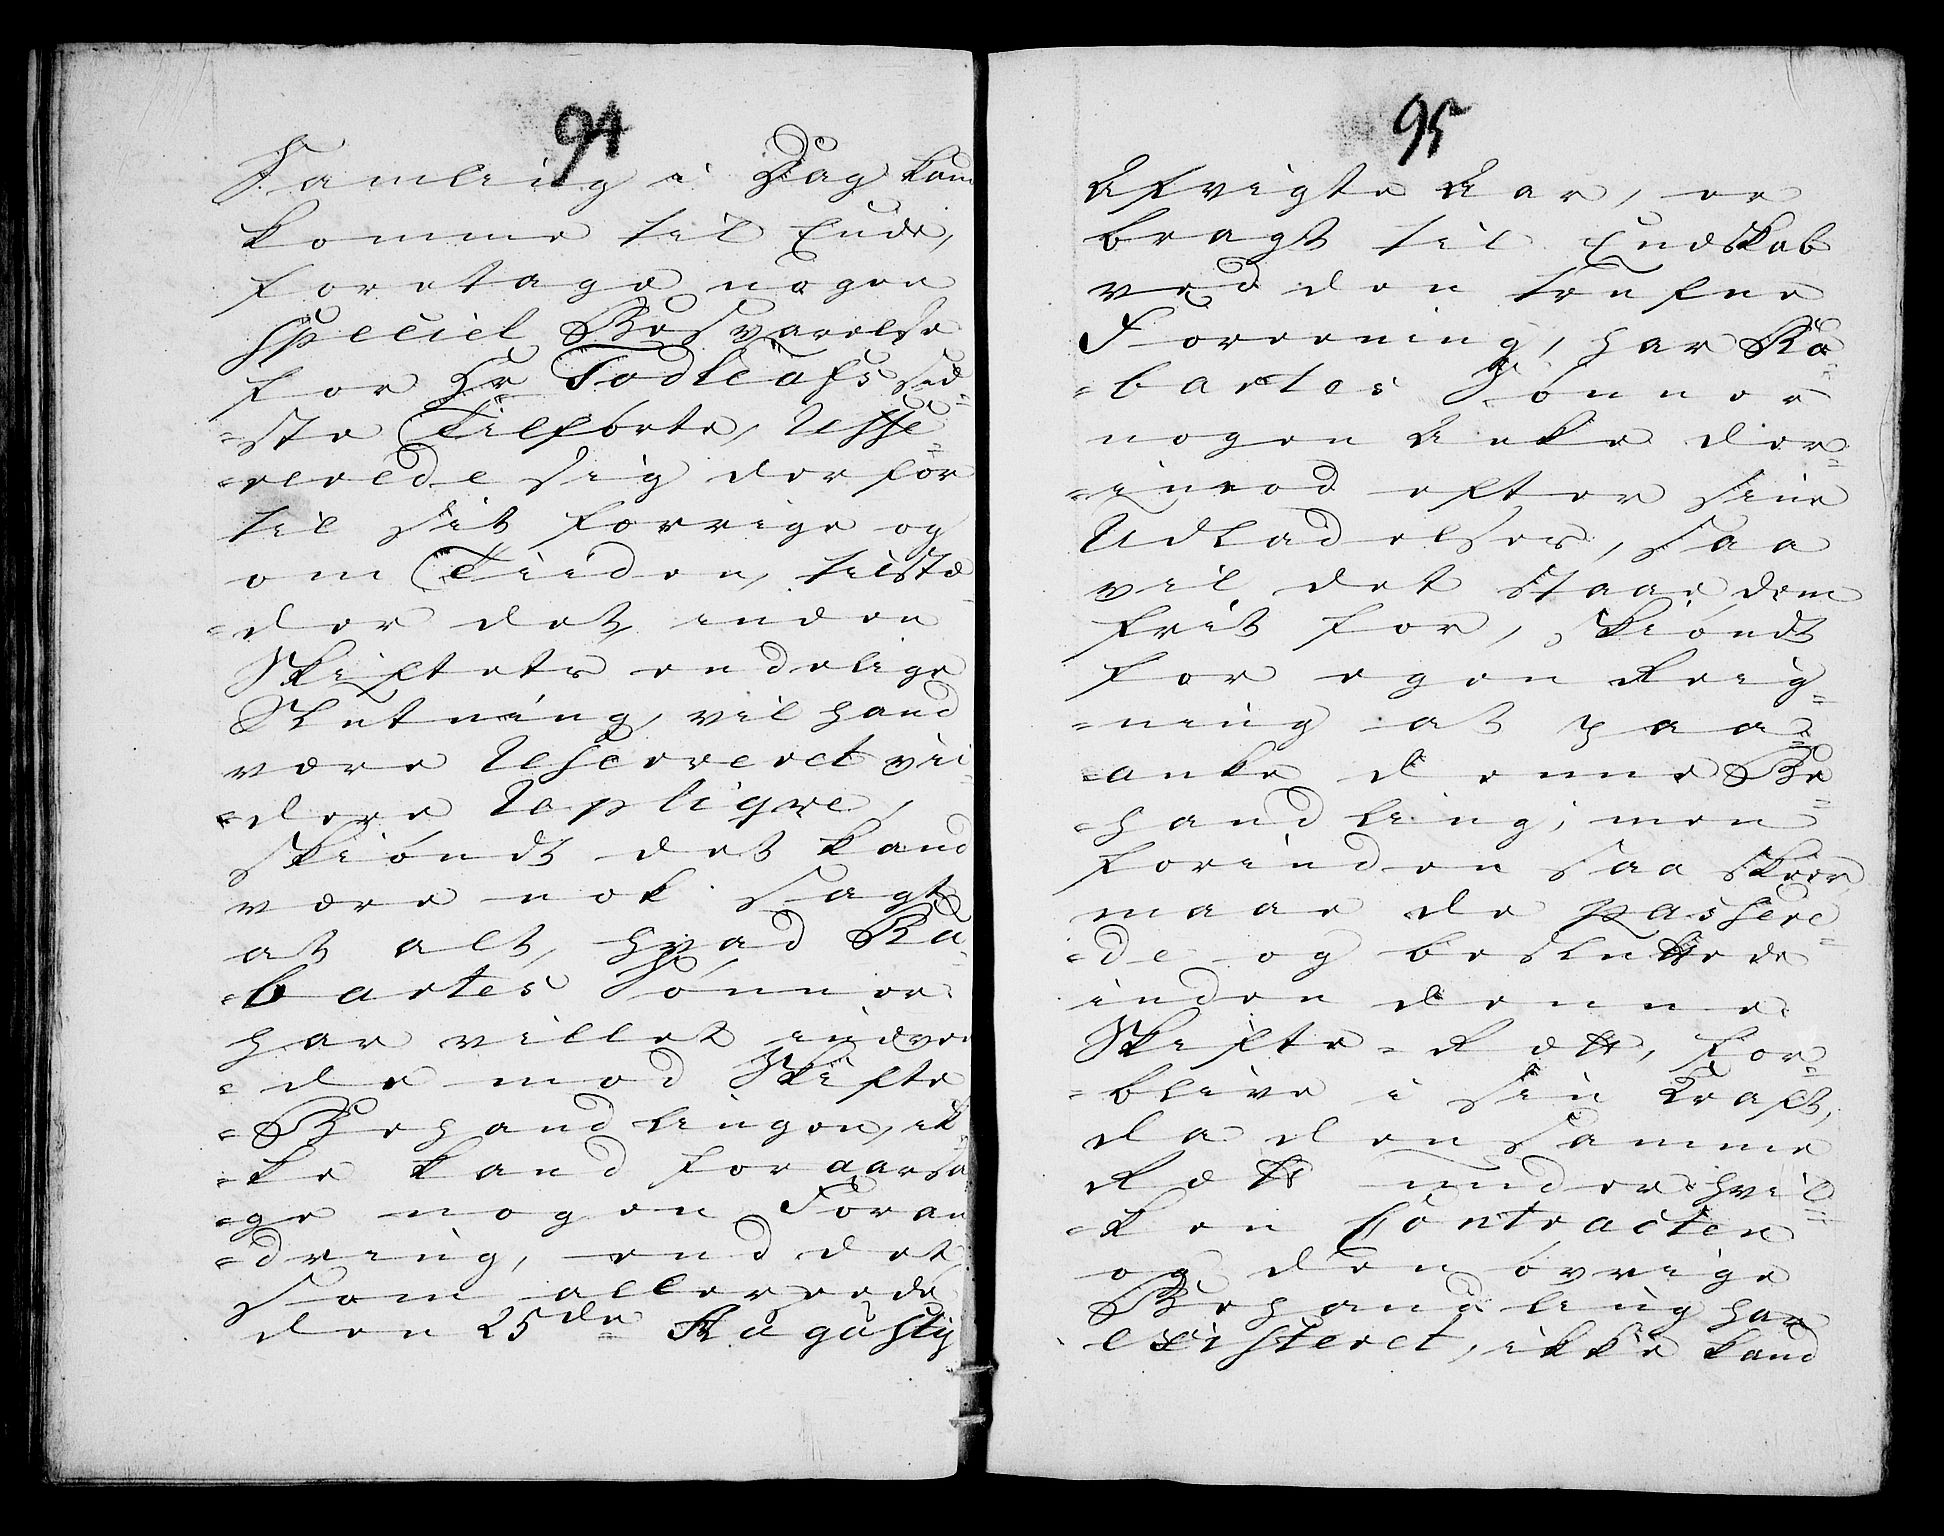 94
Samling i Dag kand
komme til Ende,
foretage nogen
speciel Besvarelse
for Hr Todleafs sid
=ste Tilførte, Reffe
=rerede sig derfor
til sit forrige og
om Tiiden, tilstæ
=der det, inden
Skiftets endelige
Slutning, vil hand
være Reserveret vii
=dere Repliqve,
skiøndt det kand
være nok sagt,
at alt, hvad Ra
=bartes Sønner
har villet indven
=de mod Skifte
=Behandlingen, ik
=ke kand foraarsa
=ge nogen Foran
=dring, end det
som allereede
den 25de Augustij
95
Afvigte Aar, er
bragt til Endskab
ved den trufne
Foreening, har Ra
=bartes Sønner
nogen Anke der
=imod efter sine
Udladelser, saa
vil det staae dem
frit for, skiøndt
for egen Reig
=ning at paa
=anke denne Be
=handling; men
forinden saa skeer,
maae de passere
=de og besluttede
inden denne
Skifte=Rætt, for
=blive i sin Kraft,
da den samme
Rætt under hvil
=ken Contracten
og den øvrige
Behandling har
existeret, ikke kand